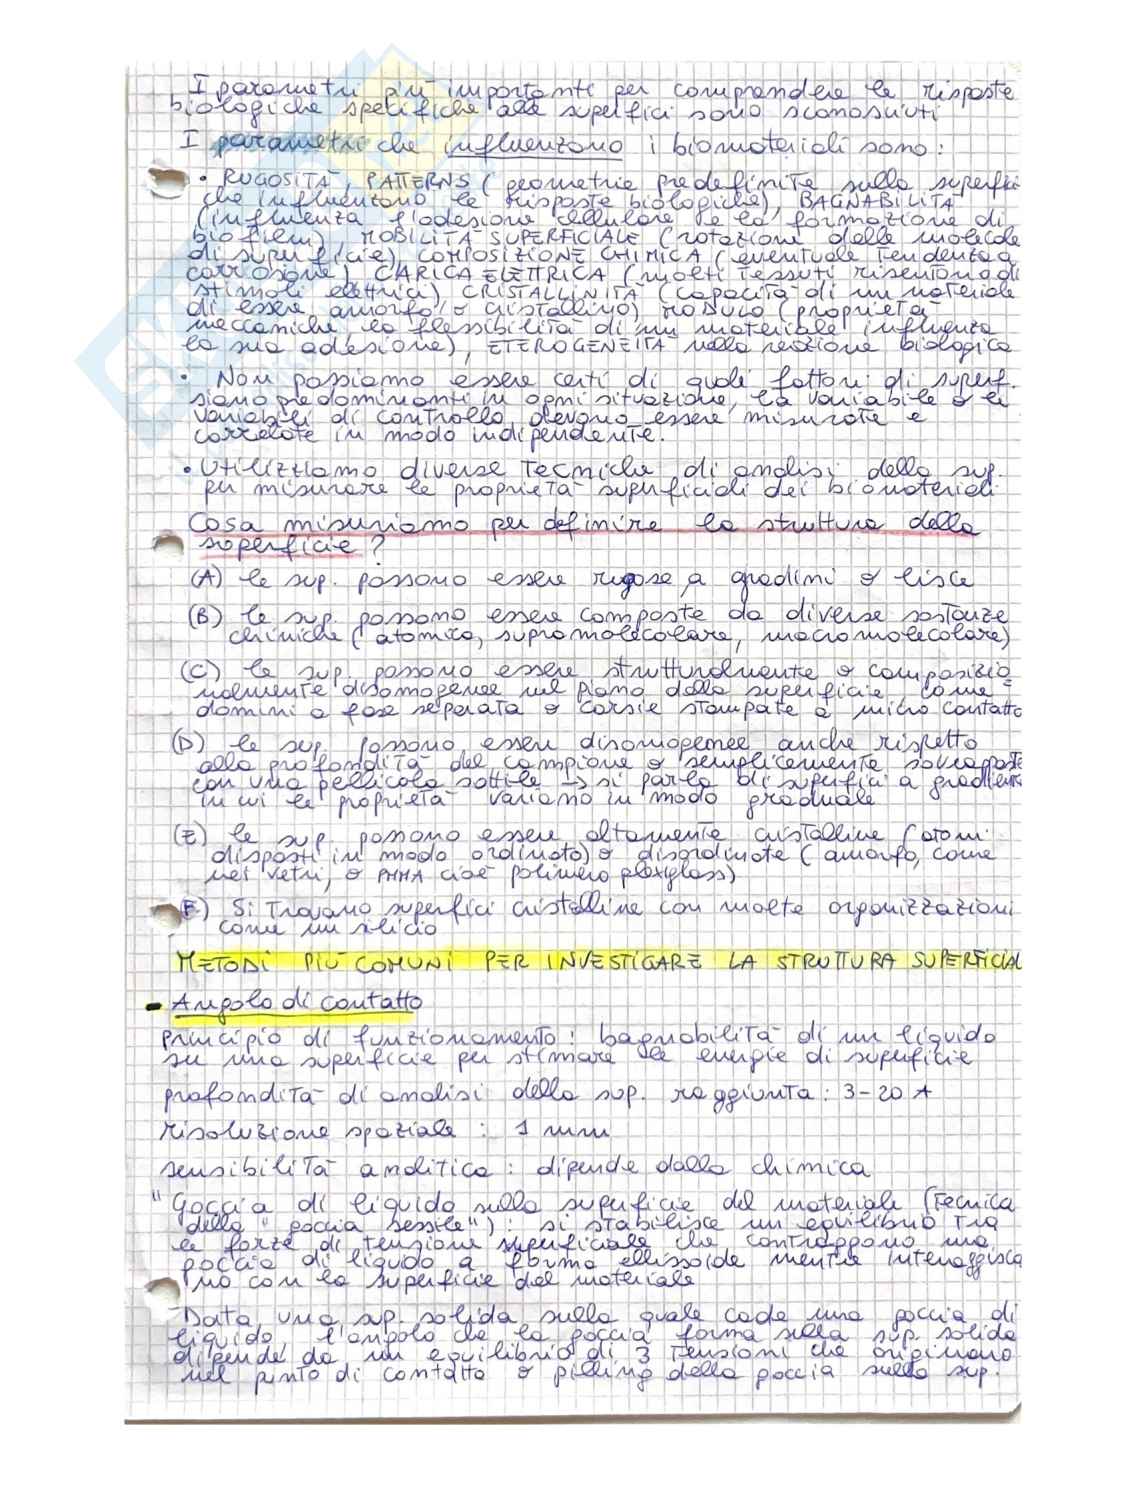 I parametri più importanti per comprendere le risposte
biologiche specifiche alle superfici sono sconosciuti
I parametri che influenzano i biomateriali sono:
• RUGOSITÀ, PATTERNS (geometrie predefinite sulla superficie
che influenzano le risposte biologiche), BAGNABILITÀ
(influenza l'adesione cellulare e la formazione di
biofilm), MOBILITÀ SUPERFICIALE (rotazione delle molecole
di superficie), COMPOSIZIONE CHIMICA (eventuale tendenza a
corrosione), CARICA ELETTRICA (molti tessuti risentono di
stimoli elettrici), CRISTALLINITÀ (capacità di un materiale
di essere amorfo o cristallino), MODULO (proprietà
meccaniche, la flessibilità di un materiale influenza
la sua adesione), ETEROGENEITÀ nella reazione biologica
• Non possiamo essere certi di quali fattori di superf.
siano predominanti in ogni situazione, la variabile o le
variabili di controllo devono essere misurate e
correlate in modo indipendente.
• Utilizziamo diverse tecniche di analisi della sup.
per misurare le proprietà superficiali dei biomateriali
Cosa misuriamo per definire la struttura della
superficie?
(A) le sup. possono essere rugose, a gradini o lisce
(B) le sup. possono essere composte da diverse sostanze
chimiche (atomico, supramolecolare, macromolecolare)
(C) le sup. possono essere strutturalmente o composizio=
nalmente disomogenee nel piano della superficie, come
domini a fase separata o corsie stampate a micro contatto
(D) le sup. possono essere disomogenee anche rispetto
alla profondità del campione o semplicemente sovrapposte
con una pellicola sottile → si parla di superfici a gradiente
in cui le proprietà variano in modo graduale
(E) le sup. possono essere altamente cristalline (atomi
disposti in modo ordinato) o disordinate (amorfo, come
nei vetri, o PMMA cioè polimero plexiglass)
(F) Si trovano superfici cristalline con molte organizzazioni
come un silicio
METODI PIÙ COMUNI PER INVESTIGARE LA STRUTTURA SUPERFICIAL
- Angolo di contatto
principio di funzionamento: bagnabilità di un liquido
su una superficie per stimare le energie di superficie
profondità di analisi della sup. raggiunta: 3-20 A
risoluzione spaziale: 1 mm
sensibilità analitica: dipende dalla chimica
"Goccia di liquido sulla superficie del materiale (tecnica
della "goccia sessile"): si stabilisce un equilibrio tra
le forze di tensione superficiale che contrappono una
goccia di liquido a forma ellissoide mentre interaggisco
no con la superficie del materiale
Data una sup. solida sulla quale cade una goccia di
liquido, l'angolo che la goccia forma sulla sup. solida
dipende da un equilibrio di 3 tensioni che originano
nel punto di contatto o pilling della goccia sulla sup.